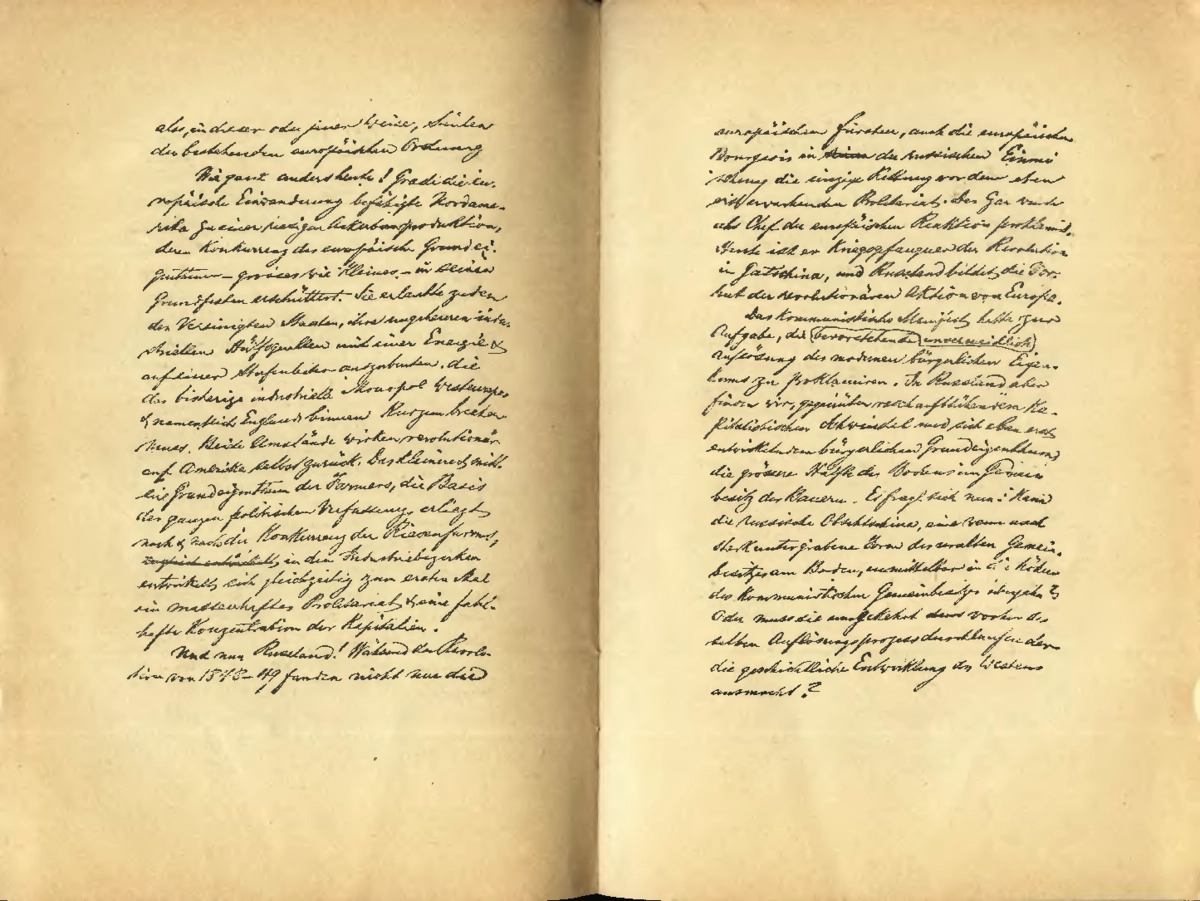 also, in dieser oder jener Weise, Säulen
der bestehenden europäischen Ordnung
Wie ganz anders heute! Grade die eu-
ropäische Einwanderung befähigte Nordame-
rika zu einer riesigen Ackerbauproduktion,
deren Konkurrenz das europäische Grundei-
genthum – grosses wie kleines – in seinen
Grundfesten erschüttert. Sie erlaubte zudem
den Vereinigten Staaten, ihre ungeheuren indu-
striellen Hülfsquellen mit einer Energie &
auf einer Stufenleiter auszubeuten, die
das bisherige industrielle Monopol Westeuropas
& namentlich Englands binnen Kurzem brechen
muss. Beide Umstände wirken revolutionär
auf Amerika selbst zurück. Das kleinere & mitt-
lere Grundeigenthum der Farmers, die Basis
der ganzen politischen Verfassung, erliegt
nach & nach der Konkurrenz der Riesenfarms,
in den Industriebezirken
entwickelt sich gleichzeitig zum ersten Mal
ein massenhaftes Proletariat & eine fabel-
hafte Konzentration der Kapitalien.
Und nun Russland! Während der Revolu-
tion von 1848–49 fanden nicht nur die
europäischen Fürsten, auch die europäischen
Bourgeois in der russischen Einmi
schung die einzige Rettung vor dem eben
erst erwachenden Proletariat. Der Zar wurde
als Chef der europäischen Reaktion proklamirt.
Heute ist er Kriegsgefangner der Revolution
in Gatschina, und Russland bildet die Vor-
hut der revolutionären Aktion von Europa.
Das Kommunistische Manifest hatte zur
Aufgabe, die bevorstehende unvermeidlich
Auflösung des modernen bürgerlichen Eigen-
thums zu proklamiren. In Russland aber
finden wir, gegenüber rasch aufblühendem Ka-
pitalistischen Schwindel und sich eben erst
entwickelndem bürgerlichen Grundeigenthum,
die grössere Hälfte des Bodens im Gemein
besitz der Bauern. Es fragt sich nun: Kann
die russische Obschtschina, eine wenn auch
stark untergrabene Form des uralten Gemein-
besitzes am Boden, unmittelbar in die höhere
des Kommunistischen Gemeinbesitzes übergehn?
Oder muss sie umgekehrt vorher den
selben Auflösungsprozess durchlaufen der
die geschichtliche Entwicklung des Westens
ausmacht?